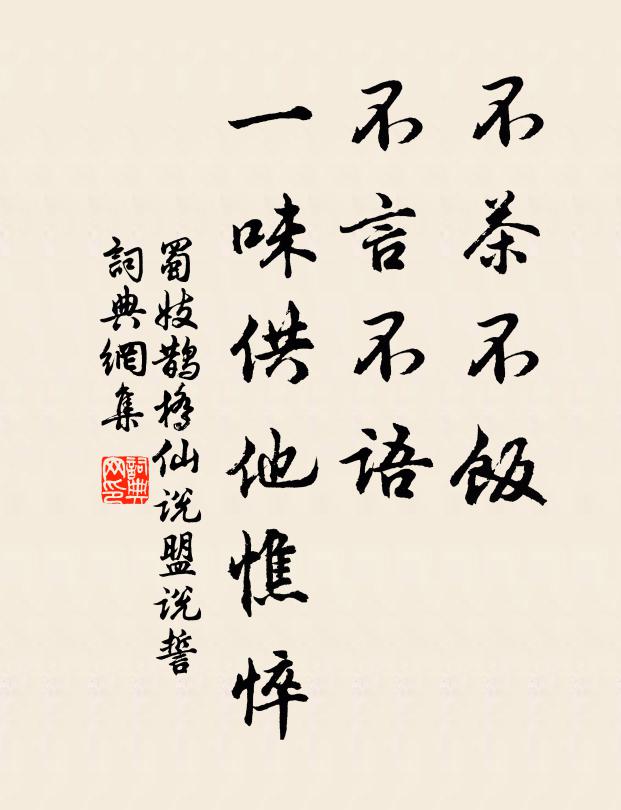 不茶不飯
不言不语
一味供他憔悴
蜀妓鵲橋仙说盟说誓
詞典網集
詞典网印